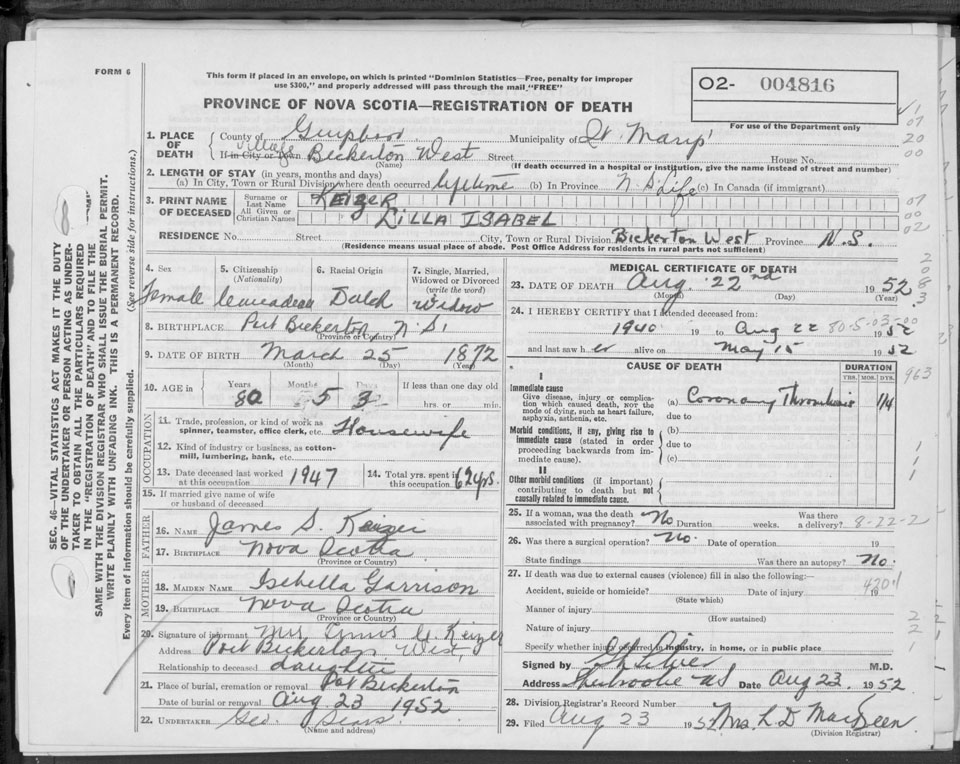 FORM 6
This form if placed in an envelope, on which is printed "Dominion Statistics—Free, penalty for improper
use $300," and properly addressed will pass through the mail "FREE"
O2- 004816
PROVINCE OF NOVA SCOTIA—REGISTRATION OF DEATH
For use of the Department only
1. PLACE OF DEATH
County of Municipality of St. Mary's
If in City or Town Bickerton West Street House No.
(Name) (If death occurred in a hospital or institution, give the name instead of street and number)
2. LENGTH OF STAY (in years, months and days)
(a) In City, Town or Rural Division where death occurred lifetime (b) In Province N.S. Life (c) In Canada (if immigrant)
3. PRINT NAME OF DECEASED
Surname or Last Name KEIZER
All Given or Christian Names LILLA ISABEL
RESIDENCE No. Street City, Town or Rural Division Bickerton West Province N.S.
(Residence means usual place of abode. Post Office Address for residents in rural parts not sufficient)
4. Sex 5. Citizenship (Nationality) 6. Racial Origin 7. Single, Married, Widowed or Divorced (write the word)
Female Canadian Dutch Widow
8. BIRTHPLACE Port Bickerton N.S.
(Province or Country)
9. DATE OF BIRTH March 25 1872
(Month) (Day) (Year)
10. AGE in Years Months Days If less than one day old
80 5 3 hrs. or min.
OCCUPATION
11. Trade, profession, or kind of work as spinner, teamster, office clerk, etc. Housewife
12. Kind of industry or business, as cotton-mill, lumbering, bank, etc.
13. Date deceased last worked at this occupation 1947 14. Total yrs. spent in this occupation 62 yrs.
15. If married give name of wife or husband of deceased
FATHER
16. NAME James S. Keizer
17. BIRTHPLACE Nova Scotia
(Province or Country)
MOTHER
18. MAIDEN NAME Isabella Garrison
19. BIRTHPLACE Nova Scotia
(Province or Country)
20. Signature of informant Mrs Keizer
Address Port Bickerton West,
Relationship to deceased daughter
21. Place of burial, cremation or removal Port Bickerton
Date of burial or removal Aug 23 1952
22. UNDERTAKER Geo. Sears
(Name and address)
MEDICAL CERTIFICATE OF DEATH
23. DATE OF DEATH Aug. 22nd 1952
(Month) (Day) (Year)
24. I HEREBY CERTIFY that I attended deceased from:
1940 19 to Aug 22 1952
80-5-03-00
and last saw her alive on May 15 1952
CAUSE OF DEATH DURATION
YRS. MOS. DYS.
I
Immediate cause
Give disease, injury or complication which caused death, NOT the mode of dying, such as heart failure, asphyxia, asthenia, etc.
(a) Coronary Thrombosis 1/4
due to
Morbid conditions, if any, giving rise to immediate cause (stated in order proceeding backwards from immediate cause).
(b)
due to
(c)
II
Other morbid conditions (if important) contributing to death but not causally related to immediate cause.
25. If a woman, was the death associated with pregnancy? No Duration weeks. Was there a delivery? 8-22-2
26. Was there a surgical operation? No. Date of operation 19
State findings Was there an autopsy? No.
27. If death was due to external causes (violence) fill in also the following:—
Accident, suicide or homicide? Date of injury 19
4201
(State which)
Manner of injury
(How sustained)
Nature of injury
Specify whether injury occurred in industry, in home, or in public place
Signed by M.D.
Address Sherbrooke NS Date Aug 23. 1952
28. Division Registrar's Record Number
29. Filed Aug 23 1952 Mrs. L D
(Division Registrar)
SEC. 46—VITAL STATISTICS ACT MAKES IT THE DUTY
OF THE UNDERTAKER OR PERSON ACTING AS UNDER-
TAKER TO OBTAIN ALL THE PARTICULARS REQUIRED
IN THE "REGISTRATION OF DEATH" AND TO FILE THE
SAME WITH THE DIVISION REGISTRAR WHO SHALL ISSUE THE BURIAL PERMIT.
WRITE PLAINLY WITH UNFADING INK. THIS IS A PERMANENT RECORD.
Every item of information should be carefully supplied. (See reverse side for instructions.)